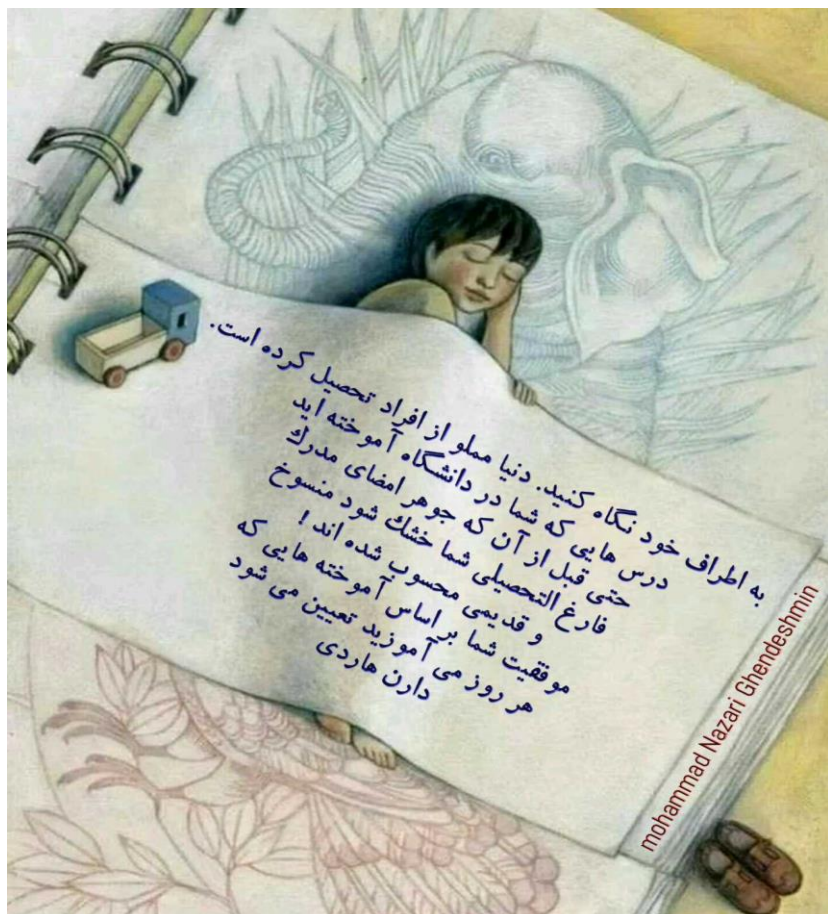 به اطراف خود نگاه کنید. دنیا مملو از افراد تحصیل کرده است.
درس هایی که شما در دانشگاه آموخته اید
حتی قبل از آن که جوهر امضای مدرک
فارغ التحصیلی شما خشک شود منسوخ
و قدیمی محسوب شده اند!
موفقیت شما بر اساس آموخته هایی که
هر روز می آموزید تعیین می شود
دارن هاردی
mohammad Nazari Ghendeshmin